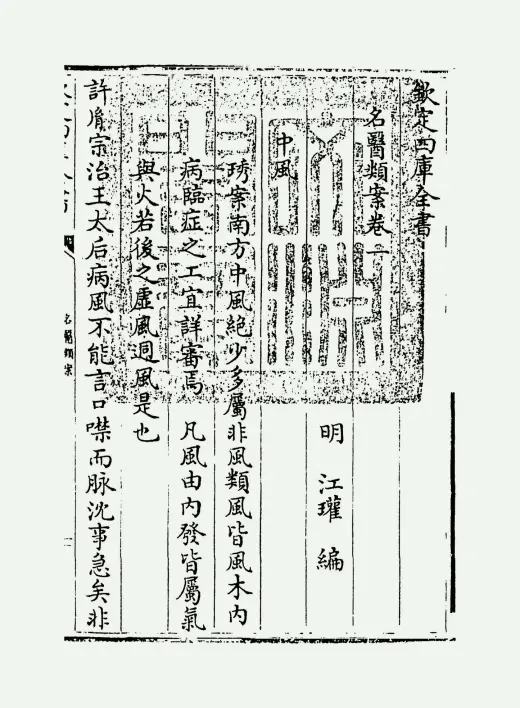 欽定四庫全書
名醫類案卷一
明 江瓘 編
中風
琇案南方中風絶少多屬非風類風皆風木内
病臨症之工宜詳審焉 凡風由内發皆屬氣
與火若後之虛風迴風是也
許胤宗治王太后病風不能言口噤而脉沈事急矣非
名醫類案